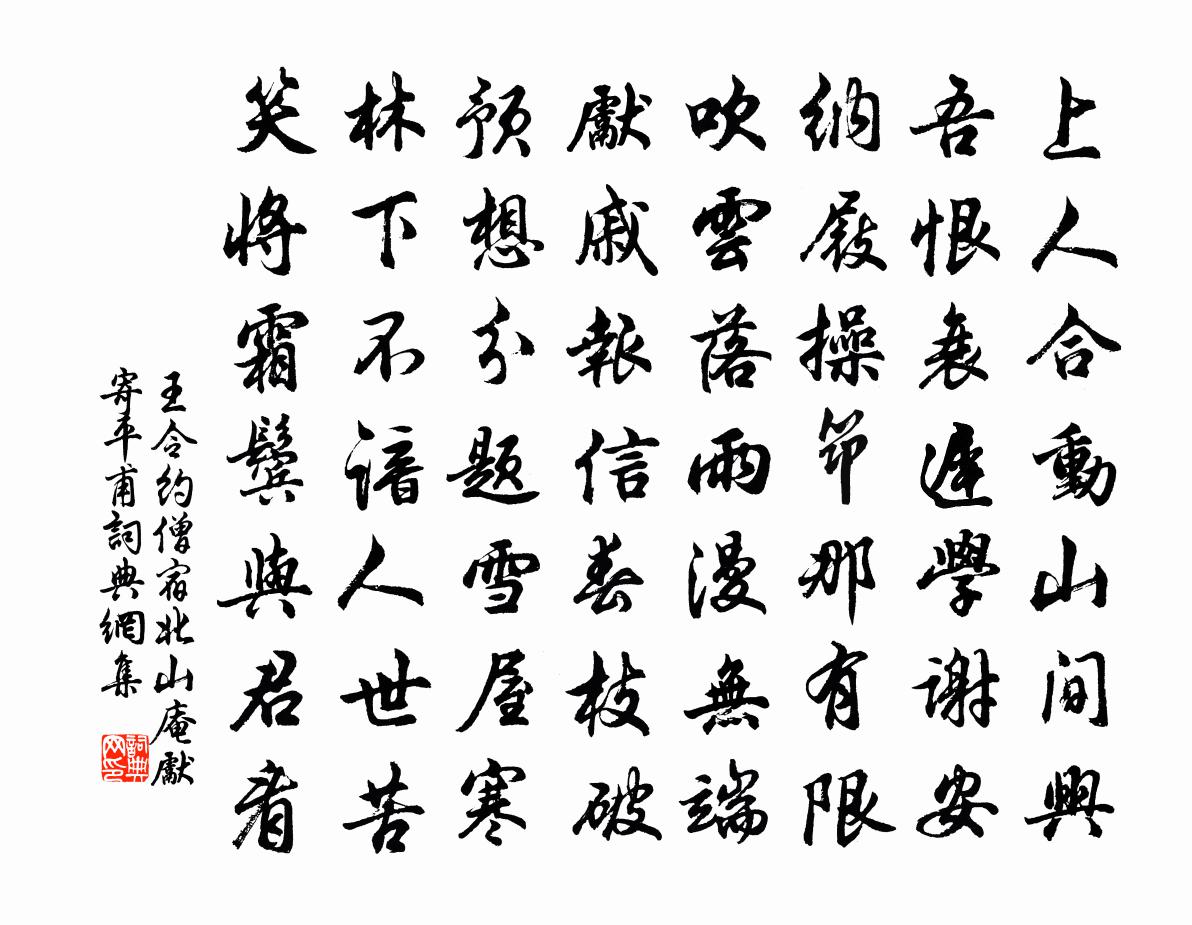 上人合動山間興
吾恨衰遲學謝安
納屐操筇那有限
吹雲落雨漫無端
獻戚報信春枝破
預想分題雪屋寒
林下不諳人世苦
笑將霜鬢與君看
王令約僧宿北山庵獻
寄平甫詞典網集
詞典
网印